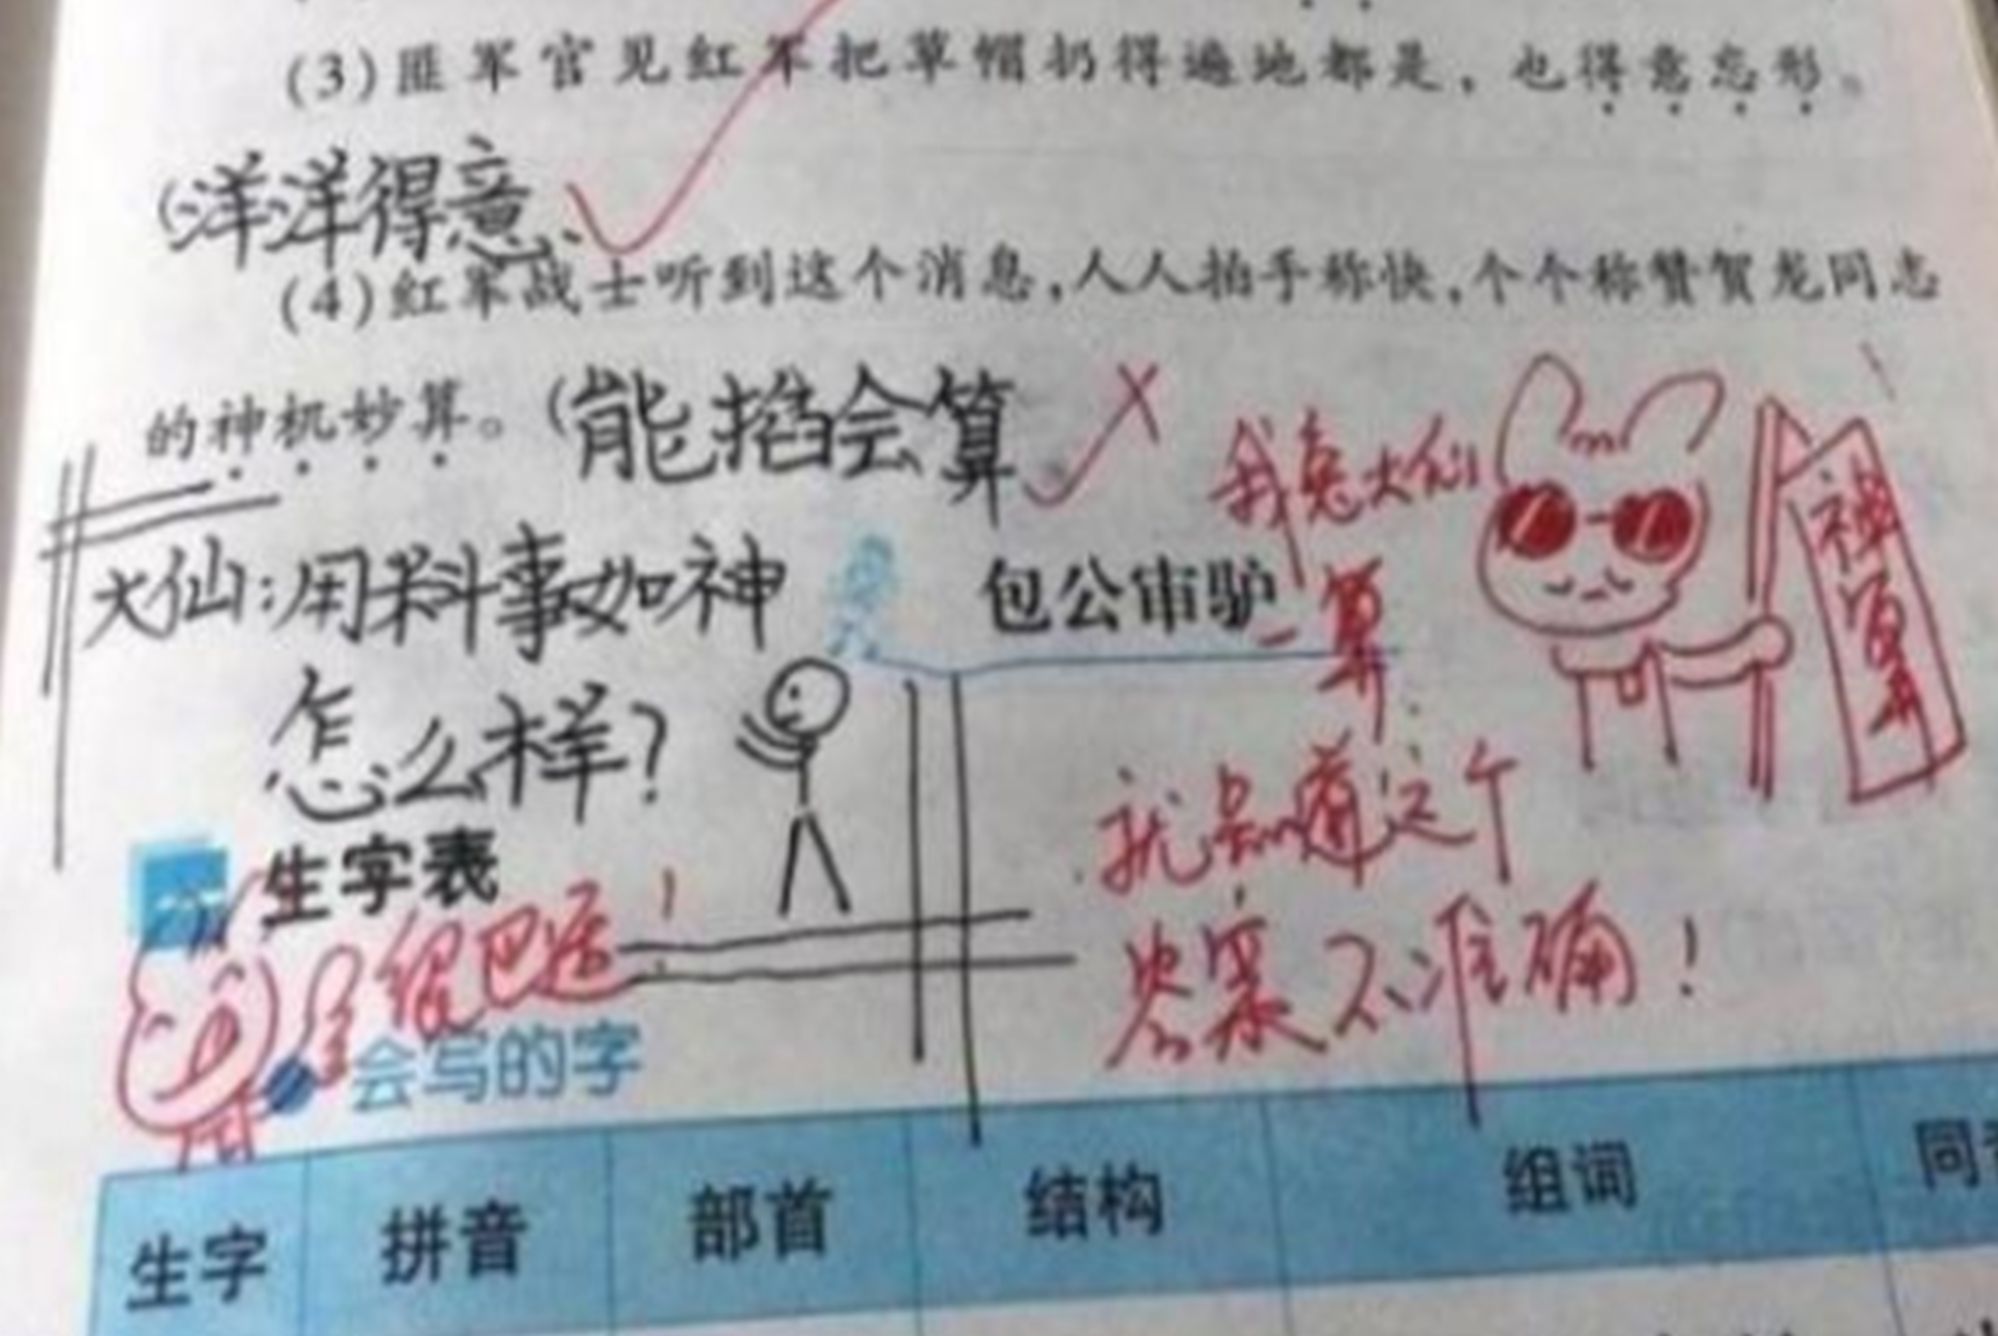 (3)匪军官见红军把草帽扔得遍地都是，也得意忘形。
(洋洋得意)
(4)红军战士听到这个消息,人人拍手称快,个个称赞贺龙同志
的神机妙算。(能掐会算)
我兔大仙
一算
神算
大仙:用料事如神
怎么样?
包公审驴
就知道这个
答案不准确!
生字表
给巴适!
会写的字
生字 拼音 部首 结构 组词 同